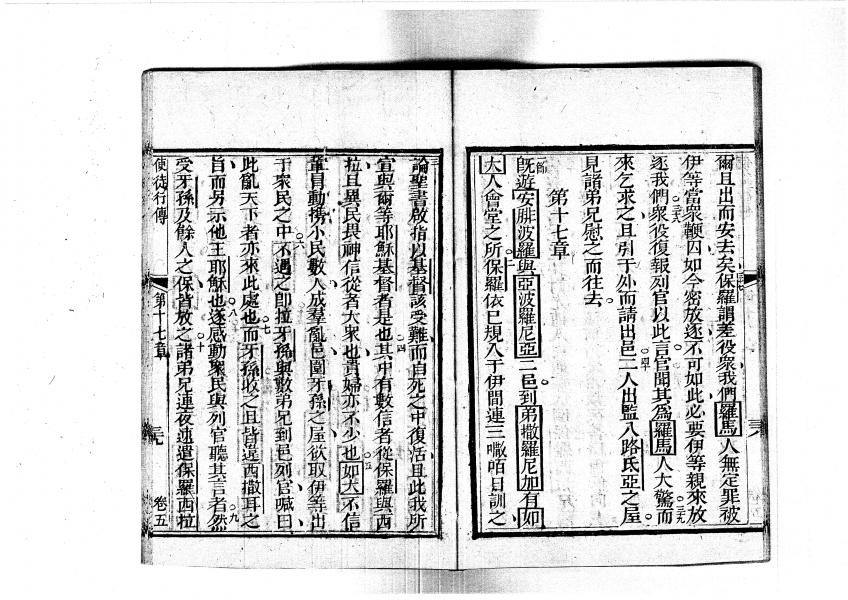 爾且出而安去矣保羅謂差役衆我們羅馬人無定罪被
伊等當衆鞭囚如今密放逐不可如此必要伊等親來放
逐我們衆役復報列官以此言官聞其為羅馬人大驚而
來乞求之且引于外而請出邑二人出監入路氐亞之屋
見諸弟兄慰之而往去
第十七章
一節
既遊安腓波羅與亞波羅尼亞二邑到弟撒羅尼加有如
大人會堂之所保羅依已規入于伊間連三㘔咟日訓之
論聖書啟指以基督該受難而自死之中復活且此我所
宣與爾等耶穌基督者是也其中有數信者從保羅與西
拉且異民畏神信從者大衆也貴婦亦不少也如大不信
輩冒動携小民數人成羣亂邑圍牙孫之屋欲取伊等出
于衆民之中不遇之卽拉牙孫與數弟兄到邑列官喊曰
此亂天下者亦來此處也而牙孫收之且皆違西撒耳之
旨而另示他王耶穌也逐感動衆民與列官聽其言者然
受牙孫及餘人之保皆放之諸弟兄連夜遣保羅西拉
使徒行傳
第十七章
卷五